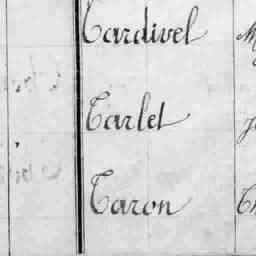 Tardivel
Tarlet
Taron